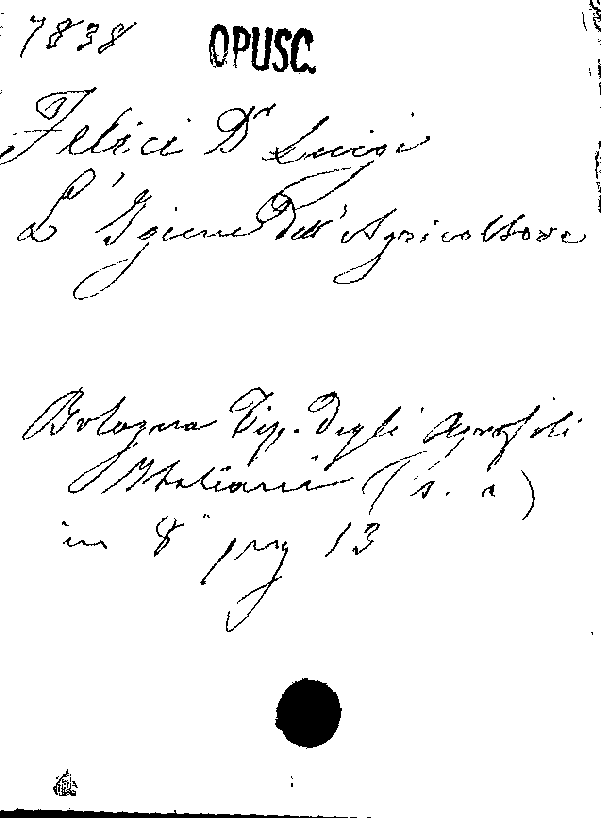 7838 OPUSC.
Felici Dr Luigi
L'Igiene Dell'Agricoltore
Bologna Tip. Degli Agrofili
Italiani (s. a)
in 8° pag 13